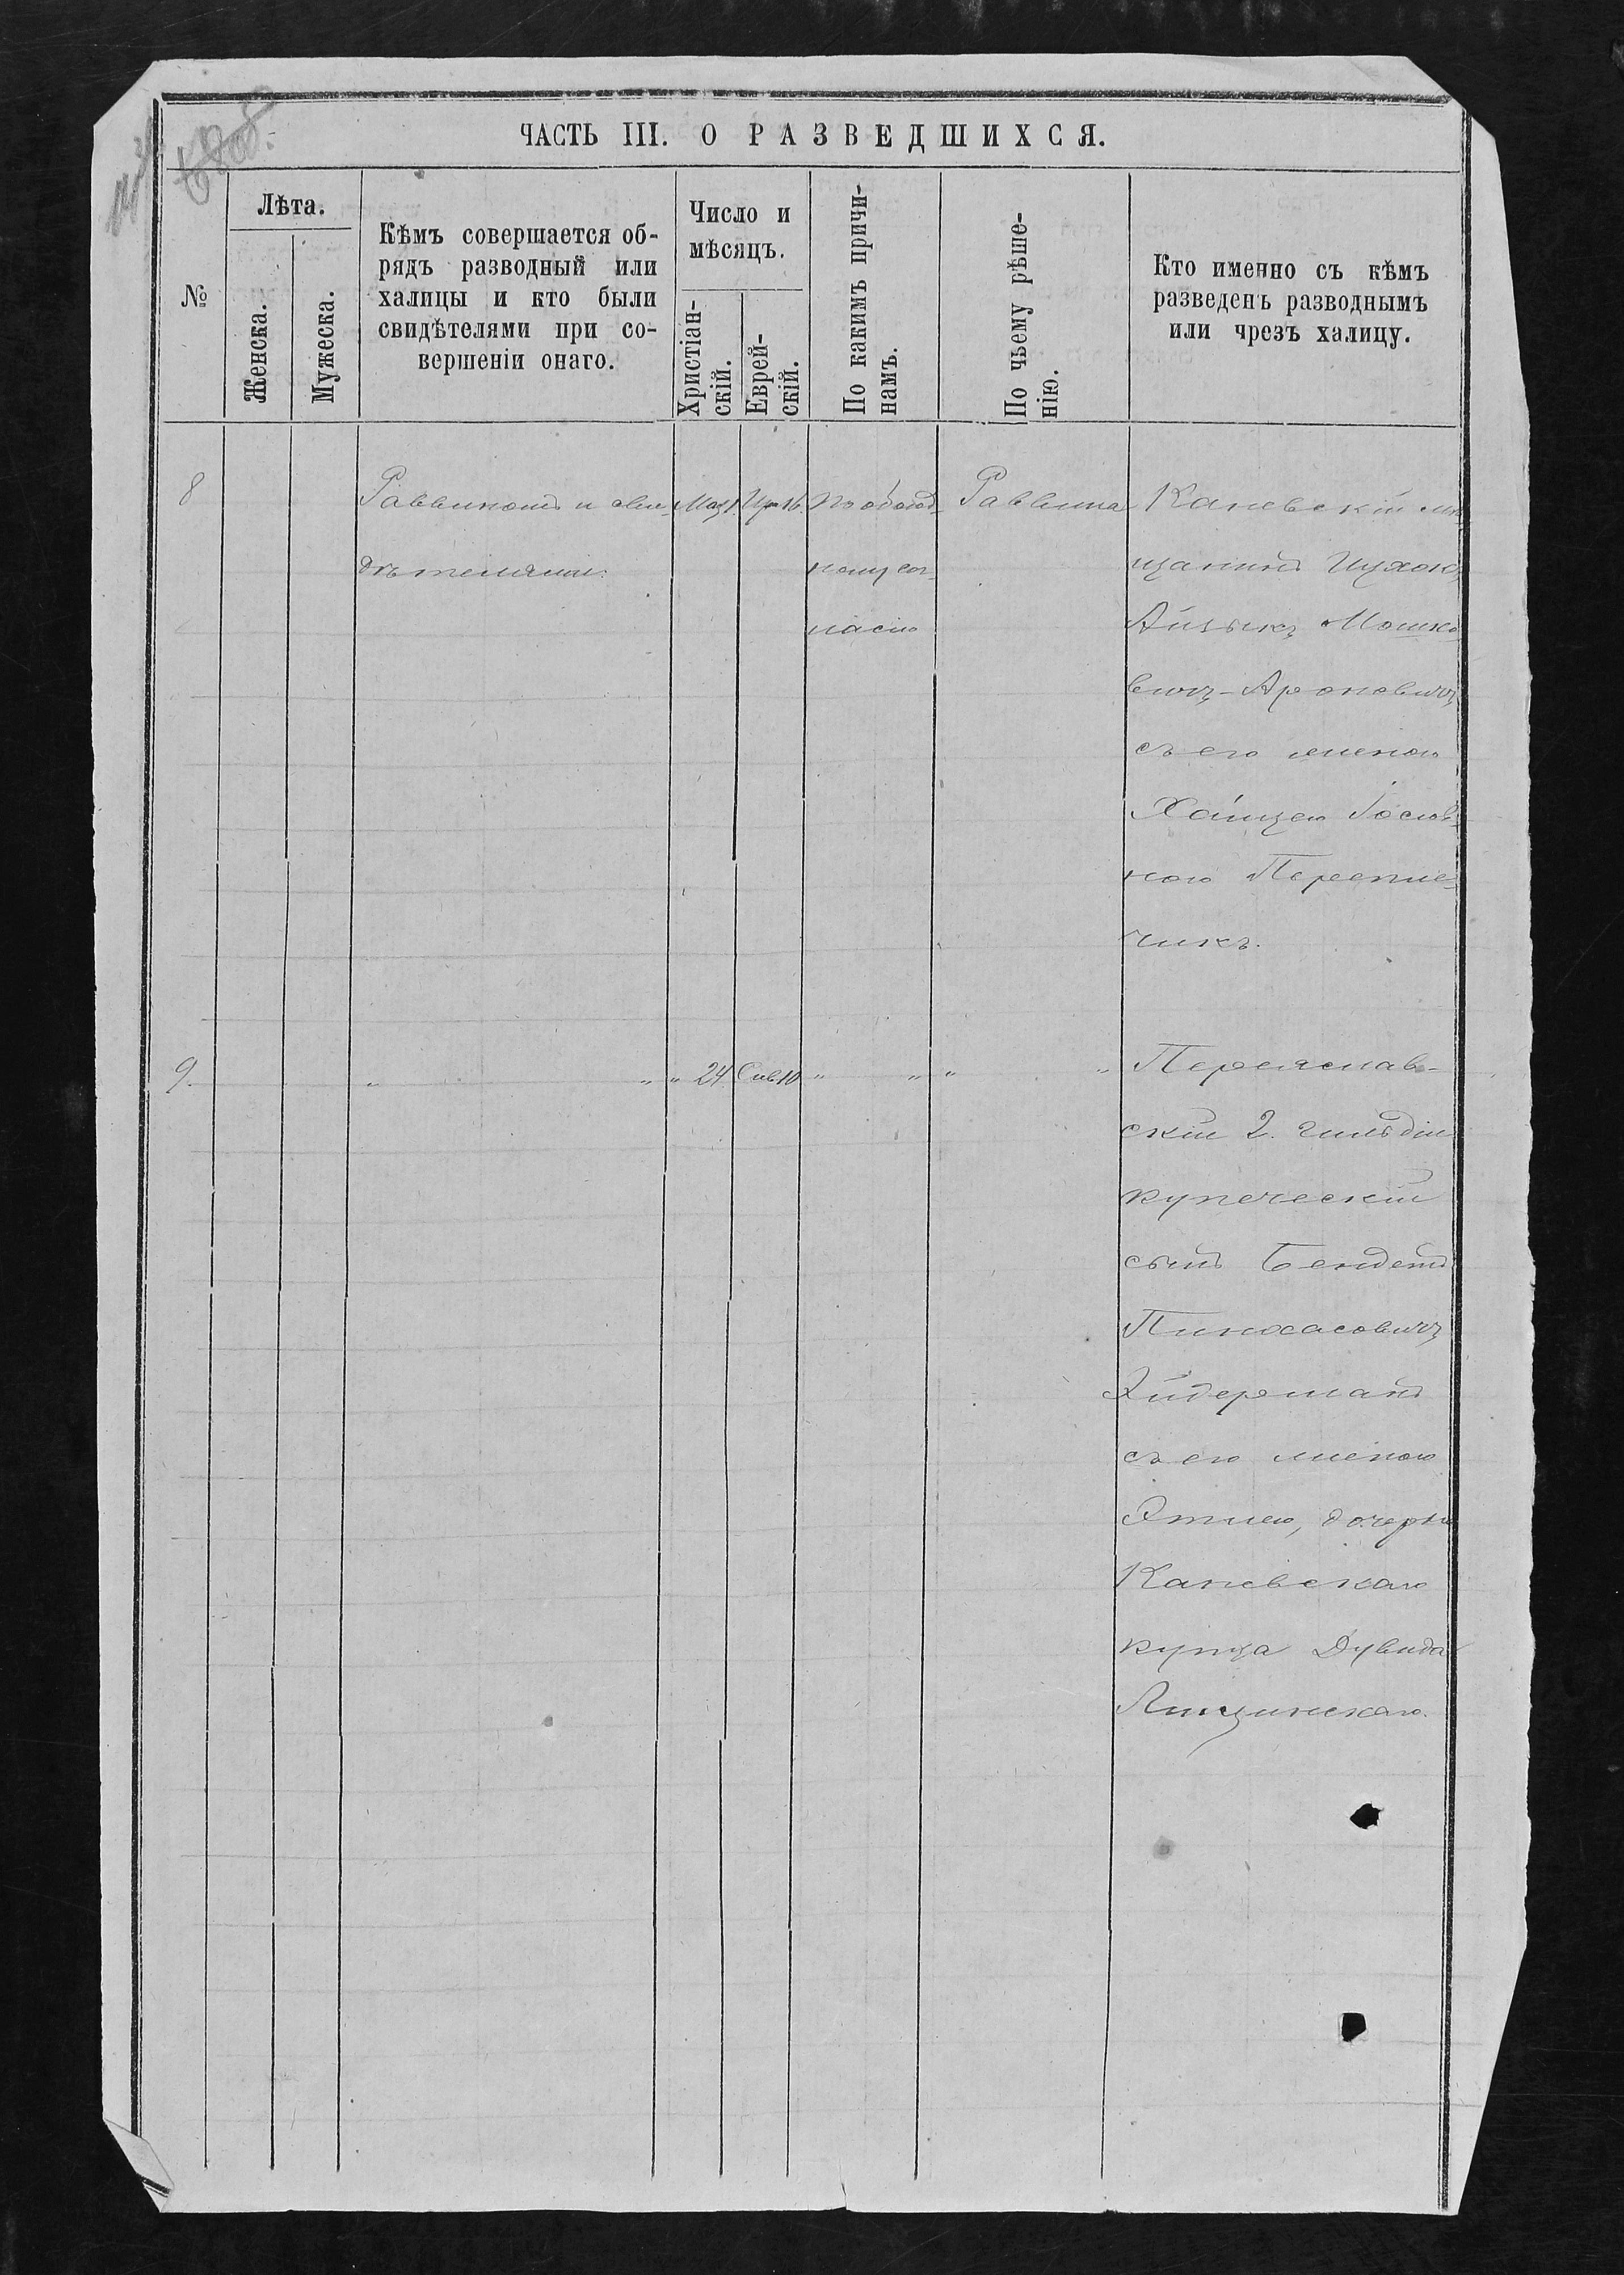 ЧАСТЬ III. О РАЗВЕДШИХСЯ.
№
Лѣта.
Женска.
Мужеска.
Кѣмъ совершается об-
рядъ разводный или
халицы и кто были
свидѣтелями при со-
вершеніи онаго.
Число и
мѣсяцъ.
Христіан-
скій.
Еврей-
скій.
По какимъ причи-
намъ.
По чьему рѣше-
нію.
Кто именно съ кѣмъ
разведенъ разводнымъ
или чрезъ халицу.
8
Раввиномъ и сви-
дѣтелями.
Мая 1.
Ир 16.
По обоюд-
ному сог-
ласію
Раввина
Каневскій мѣ-
щанинъ Ицхокъ
Айзыкъ Мошко-
вичъ-Ароновичъ
съ его женою
Хаищею Іосіов-
ною Перепле-
чикъ.
9.
" " " 24 Сив 10 " " " "
Переяслав-
скій 2. гильдіи
купеческій
сынъ Бендетъ
Пинхасовичъ
Эйдерманъ
съ его женою
Этлею, дочерью
Каневскаго
купца Дувида
Лищинскаго.